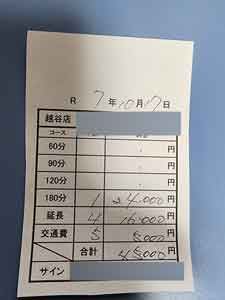 R 7年10月17日
越谷店
コース
60分 円
90分 円
120分 円
180分 1 24.000円
延長 4 16.000円
交通費 5 5.000円
合計 45.000円
サイン